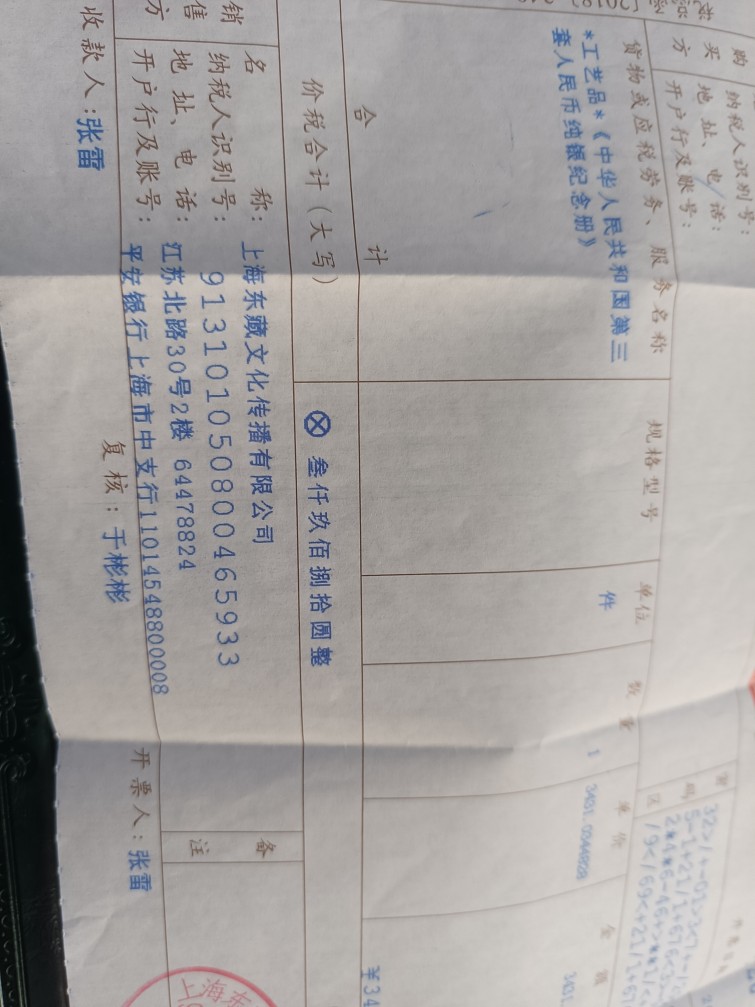 购
买
方
纳税人识别号:
地址、电话:
开户行及账号:
密
码
区
货物或应税劳务、服务名称 规格型号 单位 数量 单价 金额
*工艺品*《中华人民共和国第三 件 1
套人民币纯银纪念册》
合 计 ¥34
价税合计(大写) ⊗ 叁仟玖佰捌拾圆整
销
售
方
名 称: 上海东藏文化传播有限公司
纳税人识别号: 913101050800465933
地址、电话: 江苏北路30号2楼 64478824
开户行及账号: 平安银行上海市中支行11014548800008
备
注
收款人: 张雷 复核: 于彬彬 开票人: 张雷
上海东